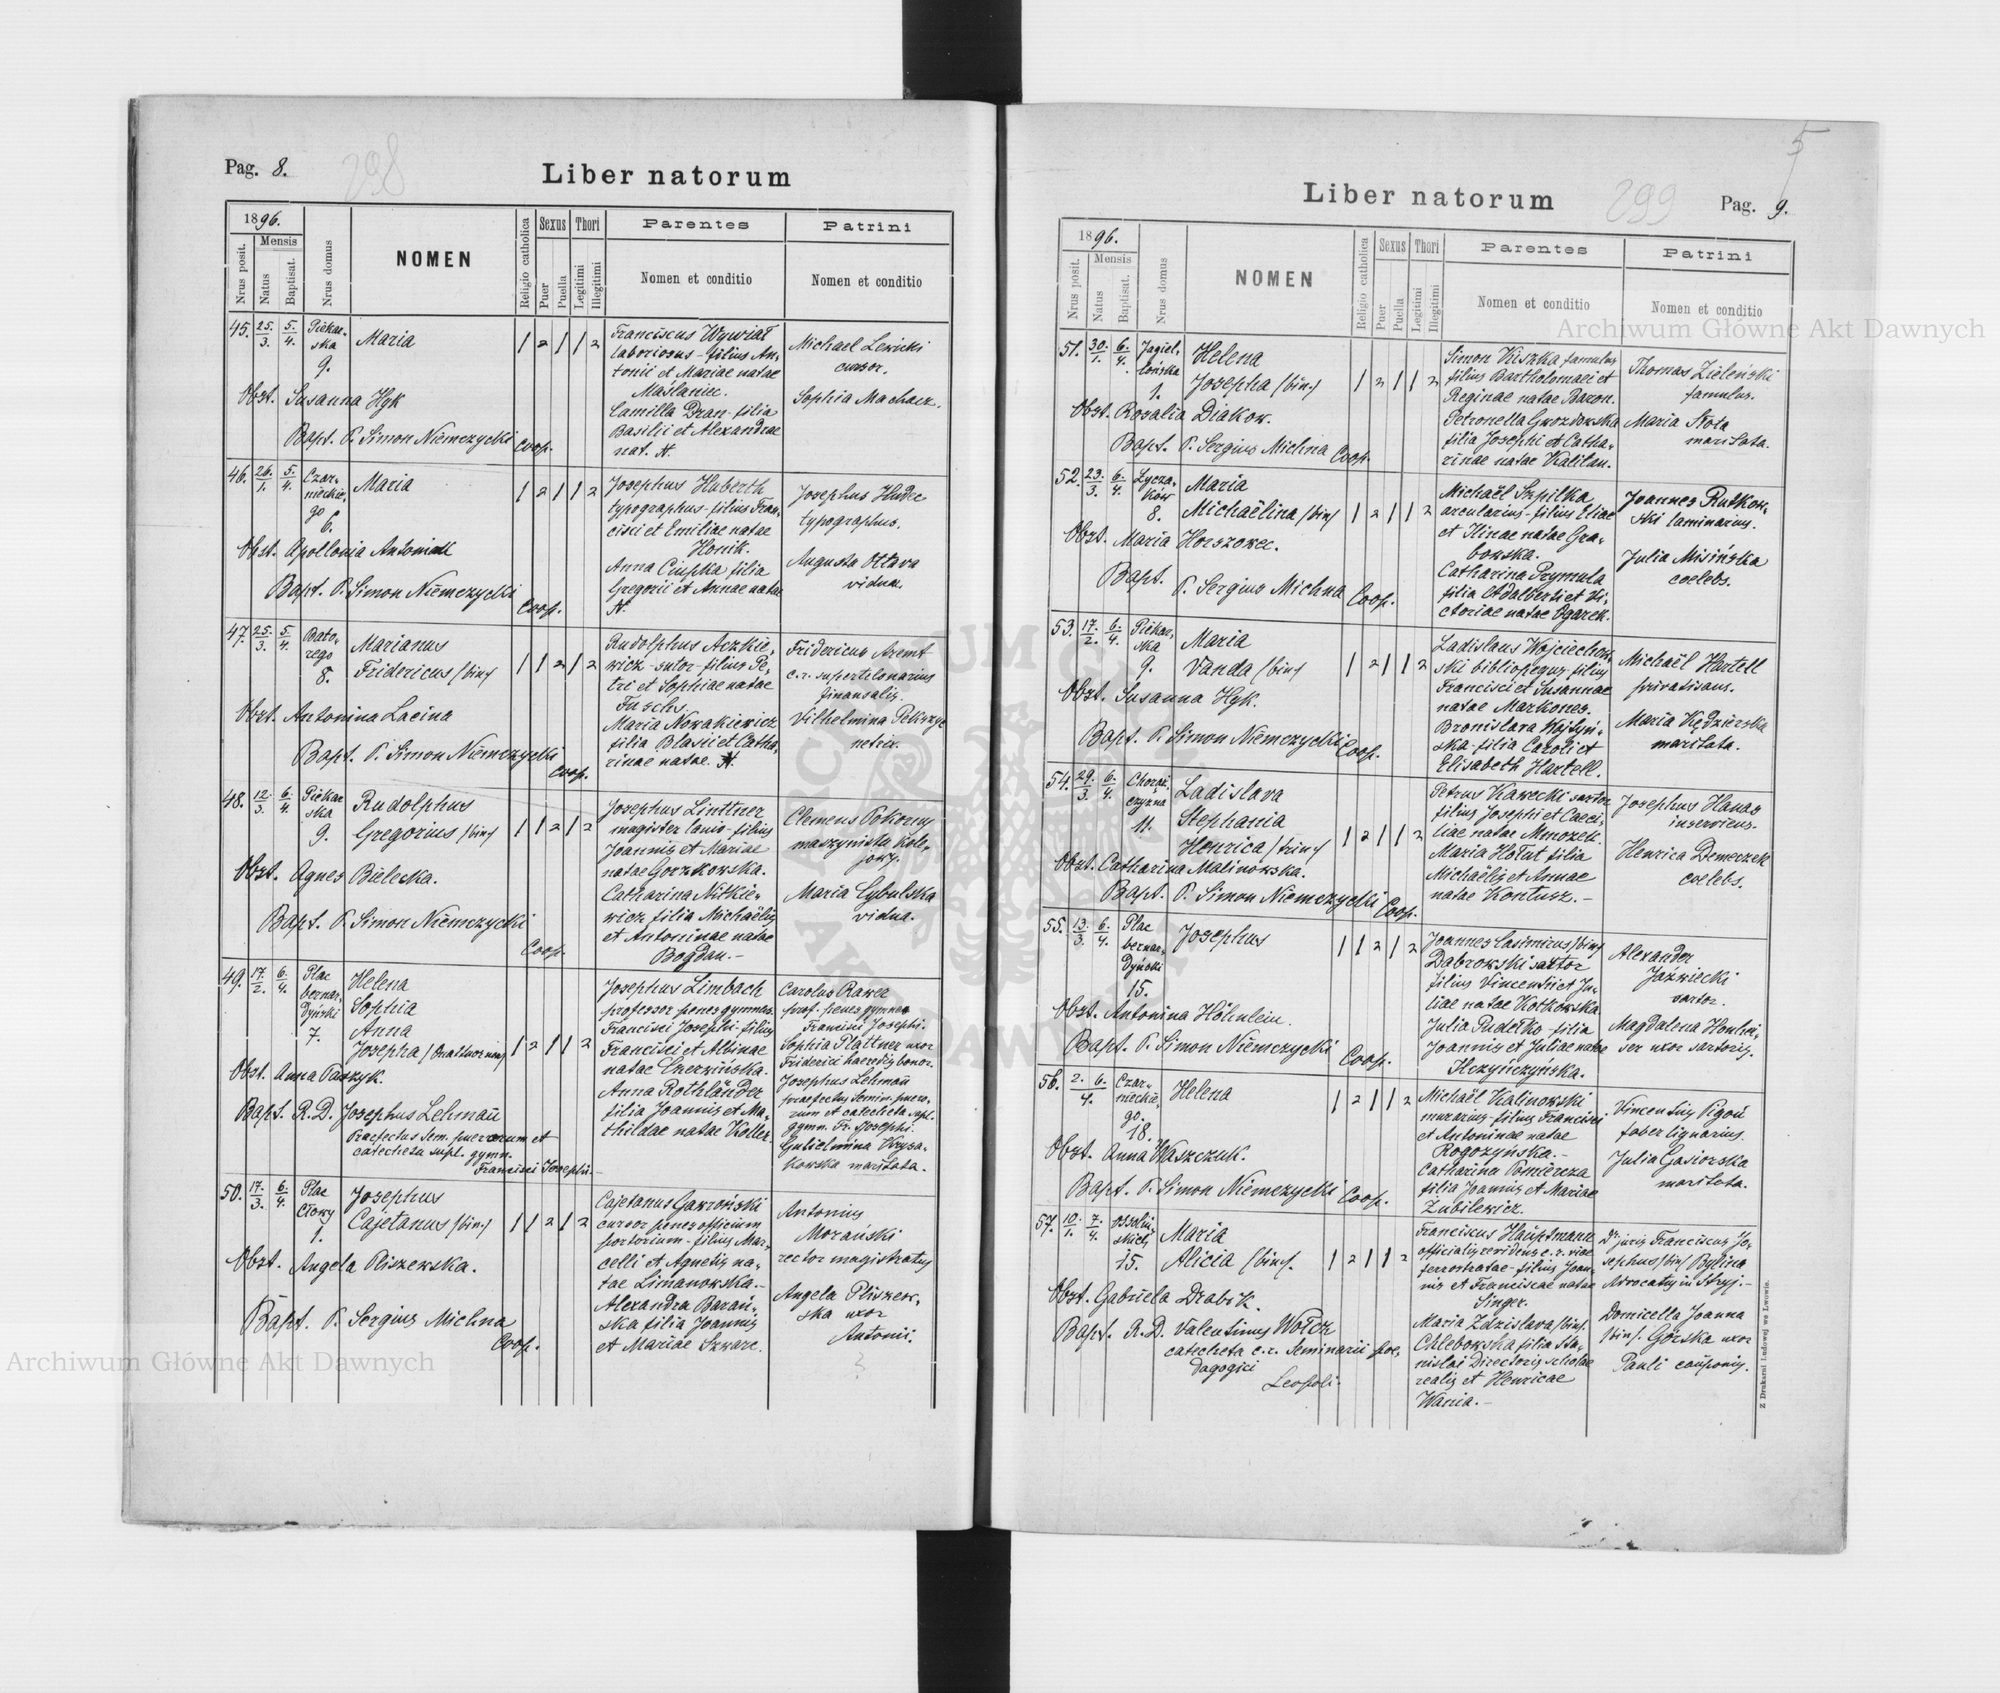 Pag. 8.
298
Liber natorum
1896.
Mensis
Nrus posit.
Natus
Baptisat.
Nrus domus
NOMEN
Religio catholica
Sexus
Puer
Puella
Thori
Legitimi
Illegitimi
Parentes
Nomen et conditio
Patrini
Nomen et conditio
45. 25/3. 5/4. Piekar-
ska
9.
Maria
1 2 1 1 2
Franciscus Wywiał
laboriosus - filius An-
tonii et Mariae natae
Maślaniec.
Camilla Dran - filia
Basilii et Alexandrae
nat. N.
Michael Lewicki
cursor.
Sophia Machacz.
Obst. Susanna Hyk
Bapt. P. Simon Niemczycki Coop.
46. 26/1. 5/4. Czar-
nieckie-
go
6.
Maria
1 2 1 1 2
Josephus Huberth
typographus - filius Fran-
cisci et Emiliae natae
Honik.
Anna Ciupka filia
Gregorii et Annae natae
N.
Josephus Hudec
typographus.
Augusta Ottava
vidua.
Obst. Apollonia Antoniak
Bapt. P. Simon Niemczycki
Coop.
47. 25/3. 5/4. Bato-
rego
8.
Marianus
Fridericus /bin/
1 1 2 1 2
Rudolphus Aczkie-
wicz - sutor - filius Pe-
tri et Sophiae natae
Fuschs.
Maria Nowakiewicz
filia Blasii et Catha-
rinae natae. N.
Fridericus Aremt
c. r. supertelonarius
finansalis,
Vilhelmina
netrix.
Obst. Antonina Lacina
Bapt. P. Simon Niemczycki
Coop.
48. 12/3. 6/4. Piekar
ska
9.
Rudolphus
Gregorius /bin/
1 1 2 1 2
Josephus Linttner
magister lanio - filius
Joannis et Mariae
natae Gorzkowska.
Catharina Nitkie-
wicz filia Michaëlis
et Antoninae natae
Bogdan. -
Clemens Pokorny
maszynista kole-
jowy.
Maria Cybulska
vidua.
Obst. Agnes Bielecka.
Bapt. P. Simon Niemczycki
Coop.
49. 17/2. 6/4. Plac
bernar-
dyński
7.
Helena
Sophia
Anna
Josepha /Quattuor nim/
1 2 1 1 2
Josephus Limbach
professor penes gymnas.
Francisci Josephi - filius
Francisci et Albinae
natae Czerwińska.
Anna Rothländer
filia Joannis et Ma-
thildae natae Koller.
Carolus Rawer
prof. penes gymnas
Francisci Josephi.
Sophia Plattner uxor
Friderici haeredis bonor.
Josephus Lehmañ
praefectus Semin. puero-
rum et catecheta supl.
gymn. Fr. Josephi.
Gulielmina Krysa-
kowska maritata.
Obst. Anna Paszyk.
Bapt. R. D. Josephus Lehmañ
Praefectus Sem. puerorum et
catecheta supl. gymn.
Francisci Josephi. -
50. 17/3. 6/4. Plac
Cłowy
1.
Josephus
Cajetanus /bin./
1 1 2 1 2
Cajetanus Gawroński
cursor penes officium
portorium - filius Mar-
celli et Agnetis na-
tae Limanowska. -
Alexandra Barań-
ska filia Joannis
et Mariae Szwarc.
Antonius
Morański
rector magistratus
Angela Pliszew-
ska uxor
Antonii.
Obst. Angela Pliszewska.
Bapt. P. Sergius Michna
Coop.
5
Liber natorum
299
Pag. 9.
1896.
Mensis
Nrus posit.
Natus
Baptisat.
Nrus domus
NOMEN
Religio catholica
Sexus
Puer
Puella
Thori
Legitimi
Illegitimi
Parentes
Nomen et conditio
Patrini
Nomen et conditio
51. 30/1. 6/4. Jagiel-
lońska
1.
Helena
Josepha /bin./
1 2 1 1 2
Simon Kiszka famulus
filius Bartholomaei et
Reginae natae Baron.
Petronella Gwozdowska
filia Josephi et Catha-
rinae natae Kalilan.
Thomas Zieleński
famulus.
Maria Nota
maritata.
Obst. Rosalia Diakow.
Bapt. P. Sergius Michna Coop.
52. 23/3. 6/4. Łycza-
ków
8.
Maria
Michaëlina /bin/
1 2 1 1 2
Michaël Szpilka
arcularius - filius Eliae
et Ilinae natae Gra-
bowska.
Catharina Prymula
filia Adalberti et Vi-
ctoriae natae Ogarek.
Joannes Rutkow-
ski laminarius.
Julia Misińska
coelebs.
Obst. Maria Horszowec.
Bapt. P. Sergius Michna Coop.
53. 17/2. 6/4. Piekar-
ska
9.
Maria
Vanda /bin/
1 2 1 1 2
Ladislaus Wojciechow-
ski bibliopegus filius
Francisci et Susannae
natae Markones.
Bronislava Wojtyń-
ska filia Caroli et
Elisabeth Hartell.
Michaël Hartell
privatisans.
Maria Kędzierska
maritata.
Obst. Susanna Hyk.
Bapt. P. Simon Niemczycki Coop.
54. 29/3. 6/4. Chorąż
czyzna
11.
Ladislava
Stephania
Henrica /trin/
1 2 1 1 2
Petrus Kawecki sartor
filius Josephi et Caeci-
liae natae Mrozek.
Maria Hołut filia
Michaëlis et Annae
natae Kontusz. -
Josephus Hanas
inserviens.
Henrica Demeczek
coelebs.
Obst. Catharina Malinowska.
Bapt. P. Simon Niemczycki Coop.
55. 13/3. 6/4. Plac
bernar-
dyński
15.
Josephus
1 1 2 1 2
Joannes Casimirus /bin/
Dąbrowski sartor
filius Vincentii et Ju-
liae natae Kotkowska
Julia Pudełko - filia
Joannis et Juliae natae
Ilczyńczyńska.
Alexander
Jaźwiecki
sartor.
Magdalena Honhei-
ser uxor sartoris.
Obst. Antonina Höhnlein.
Bapt. P. Simon Niemczycki Coop.
56. 2/4. 6/4. Czar-
nieckie-
go.
18.
Helena
1 2 1 1 2
Michaël Kalinowski
murarius - filius Francisci
et Antoninae natae
Rogozyńska. -
Catharina Pomiereza
filia Joannis et Mariae
Zubilewicz.
Vincentius Pigoń
faber lignarius.
Julia Gąsiorska
maritata.
Obst. Anna Waszczuk.
Bapt. P. Simon Niemczycki Coop.
57. 10/1. 7/4. Ossoliń-
skich
15.
Maria
Alicia /bin/.
1 2 1 1 2
Franciscus Hauptmann
officialis revidens c. r. viae
ferrostratae - filius Joan-
nis et Franciscae natae
Singer.
Maria Zdzislava /bin/.
Chlebowska filia Sta-
nislai directoris scholae
realis et Henricae
Wania. -
Dr. juris Franciscus Jo-
sephus /bin/ Bylina
Advocatus in Stryj. -
Domicella Joanna
/bin/. Górska uxor
Pauli cauponis.
Obst. Gabriela Drabik.
Bapt. R. D. Valentinus Wołcz
catecheta c. r. Seminarii pae-
dagogici
Leopoli.
Z Drukarni Ludowej we Lwowie.
Archiwum Główne Akt Dawnych
Archiwum Główne Akt Dawnych